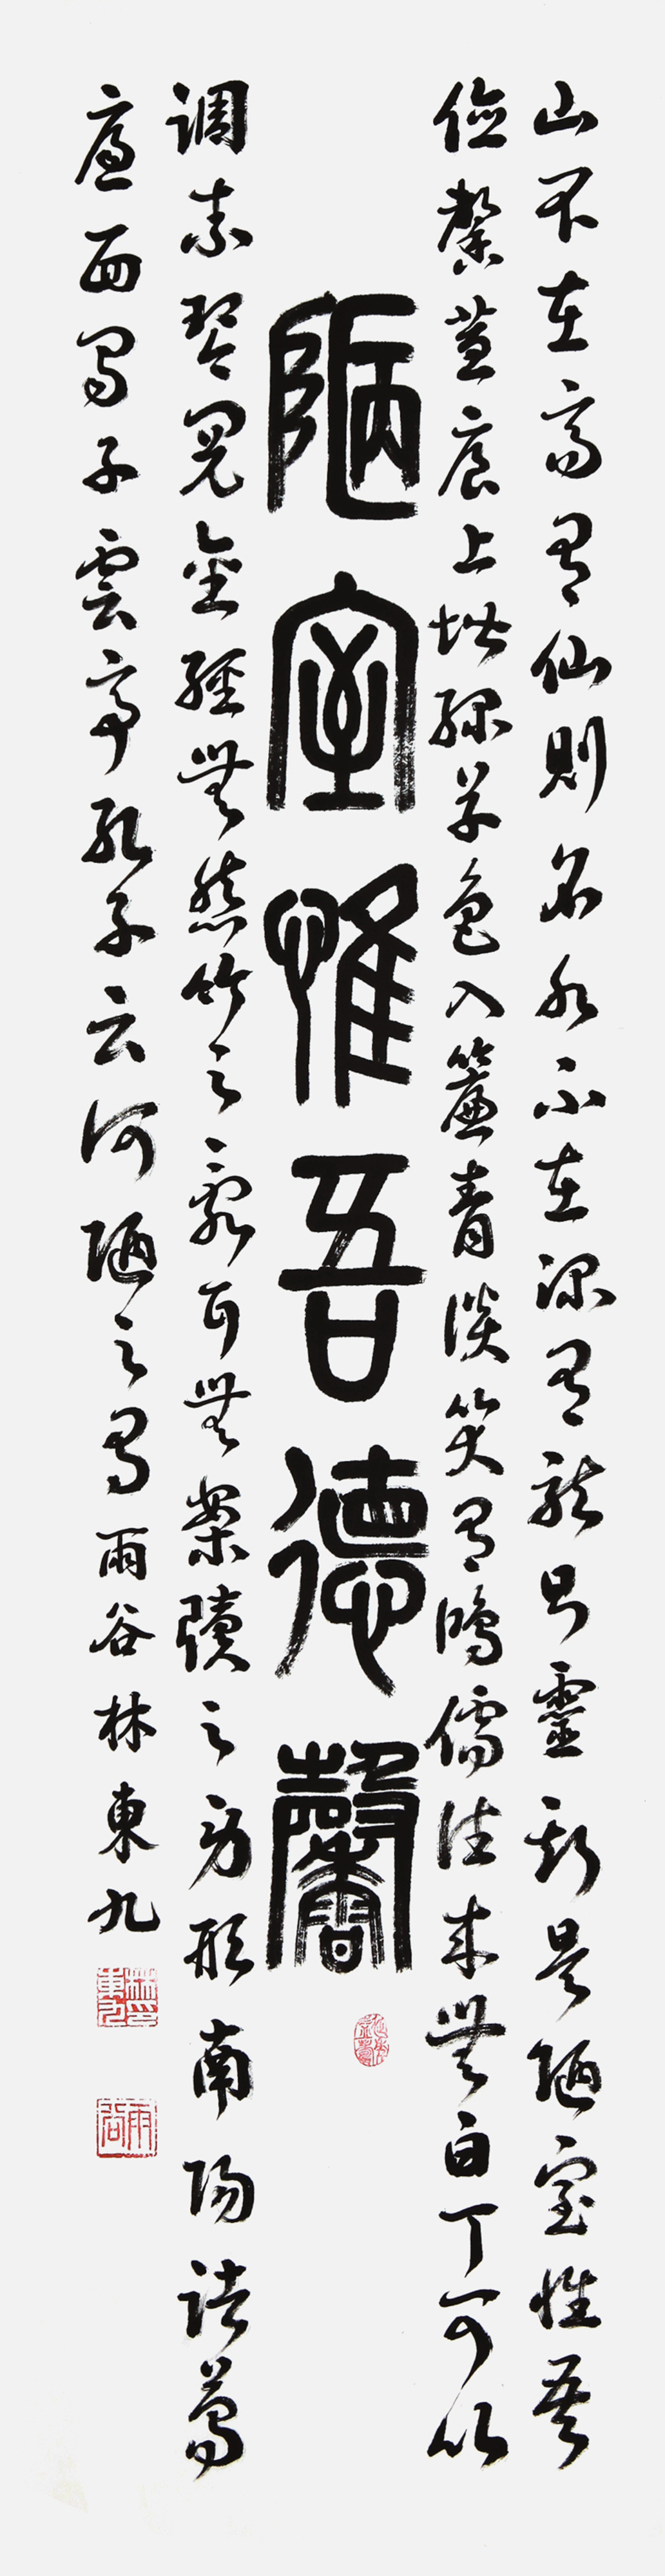 山不在高有仙則名水不在深有龍則靈斯是陋室惟吾
德馨苔痕上堦綠草色入簾青談笑有鴻儒往來無白丁可以
陋室惟吾德馨
調素琴閱金經無絲竹之亂耳無案牘之勞形南陽諸葛
廬西蜀子雲亭孔子云何陋之有雨谷林東九
林東九印
雨谷